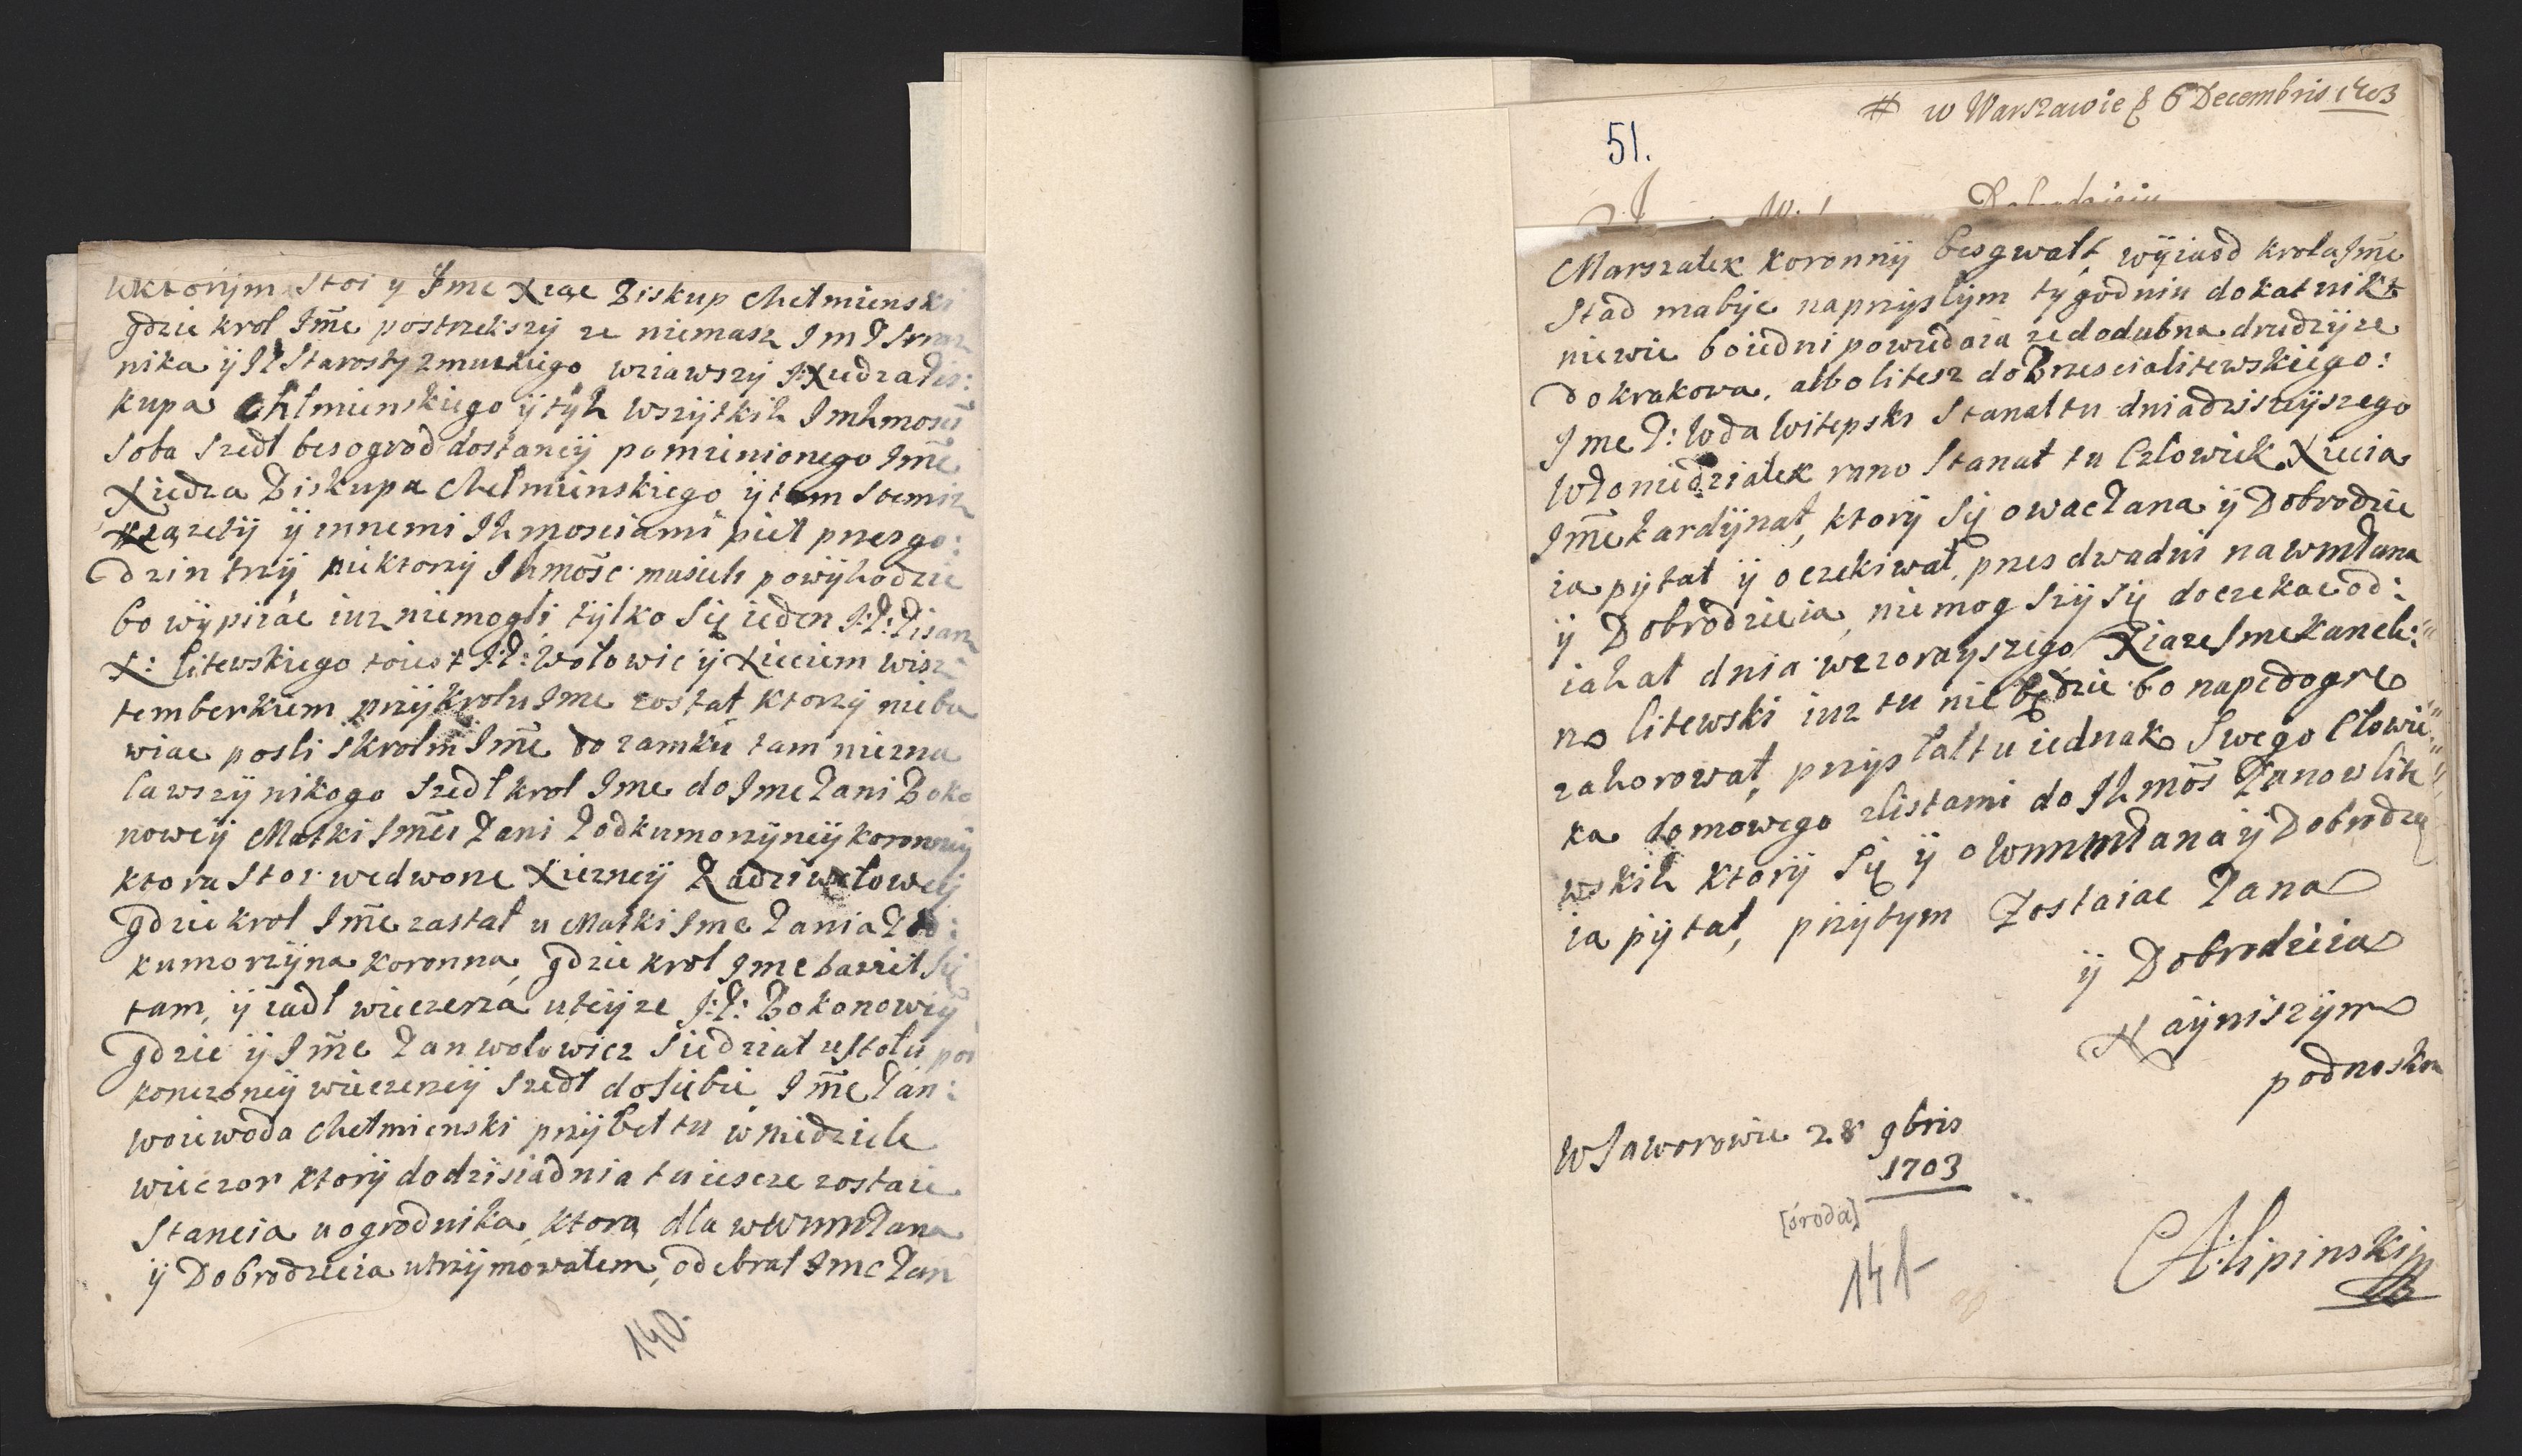 wktorÿm stoi y Jme Xiąc Biskup Chełmienski
gdzie krol Jm̃e postrzekszÿ ze niemasz Jm P
nika ÿ JP Starostÿ zmuckiego wziawszÿ J Xiedza Bis:
kupa Chłmienskiego ÿ tÿh wszÿtkih Jmhmosci
soba szedł bes ogrod do stanciÿ pomienionego Jme
Xiedza Biskupa Chełmienskiego ÿ tam
ÿ innemi Jhmosciami pieł przes go:
dzin trzÿ, niektorzÿ Jhmośc musieli powÿhodzic
bo wÿpiiac iuz niemogli, tÿlko Się ieden J:P: Pisarz
X: litewskiego toiest J:P: Wołowic ÿ Xieciem wirz
temberkiem przÿ krolu Jme został ktorzÿ nieba
wiac posli skrolm Jm̃e do zamku tam niezna
lawszÿ nikogo szedł krol Jme do Jme Pani Boko
noweÿ Matki Jmẽi Pani Podkumorzÿneÿ koronneÿ
ktora stoi wedworze Xiezneÿ Radziwełoweÿ
gdzie krol Jm̃e zastał u Matki Jme Pania Pod:
kumorzÿna koronna, gdzie krol Jme bawieł Się
tam, ÿ iadł wieczerza uteÿze J:P: Bokonoweÿ
gdzie ÿ Jm̃e Pan wołowicz siedział u stołu po
konczoneÿ wieczerzeÿ szedł do siebie, Jm̃e Pan:
woiewoda chełmienski przÿbeł tu w niedziele
wieczor ktorÿ do dzisia dnia tu iescze zostaie
Stancia u ogrodnika, ktora dla wwmmPana
ÿ Dobrodzieia utrzÿmowałem, odebrał Jme Pan
140.
# w Warszawie 6 Decembris 1703
51.
Marszałek koronnÿ bes gwałt, wÿiasd krola Jm̃e
stad ma bÿc na przÿsłÿm tygodniu dokat nikt
niewie bo iedni powiedaia ze do dubna drudzÿ ze
do krakowa, albo litesz do Brzescia litewskiego:
Jme P: Woda Witepski Stanał tu dnia dzisieÿszego
W Poniedziałek rano Stanał tu Człowiek Xiecia
Jm̃e kardÿnał, ktorÿ Sÿ o wac Pana ÿ Dobrodzie
ia pÿtał ÿ oczekiwał, przes dwa dni na wmPana
ÿ Dobrodzieia, niemog szÿ sÿ doczekac od:
iahał dnia wczorayszego Xiaze Jme Kancle:
rz litewski iuz tu nie będzie bo na pedogre
zahorował, przÿsłał tu iednak Swego Człowie
ka domowego zlistami do Jhmos̃ Panow litt
wskih ktorÿ Się ÿ o wmmPana ÿ Dobrodzie
ia pÿtał, przÿtym Zostaiac Pana
ÿ Dobrodzieia
Naÿniszÿm
podnoskim
W Jaworowie 28 9bris
1703
[środa]
141
A Lipinski